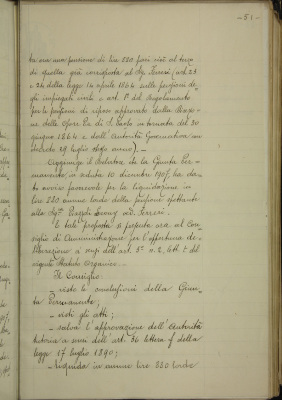 - 51 -
ta era una pensione di lire 220 pari cioè al terzo
di quella già corrisposta al Sig. Teresi (art. 23
e 24 della legge 14 aprile 1864 sulle pensioni de-
gli impiegati civili e art. 1° del Regolamento
per le pensioni di riposo approvato dalla
ne delle Opere Pie di S. Paolo in tornata del 20
giugno 1864 e dall'autorità Governativa in
data 29 luglio stesso anno). -
Aggiunge il Relatore che la Giunta Per-
manente, in seduta 10 dicembre 1907, ha da-
to avviso favorevole per la liquidazione in
lire 220 annue lorde della pensione spettante
alla Sig.ra ved. Teresi.
E tale proposta si presenta ora al Con-
siglio di Amministrazione per l'opportuna de-
liberazione a sensi dell'art. 5° n. 2, lett. e del
vigente Statuto Organico. -
Il Consiglio
- viste le conclusioni della Giun-
ta Permanente;
- visti gli atti;
- salva l'approvazione dell'autorità
tutoria a sensi dell'art. 36 lettera f della
legge 17 luglio 1890;
- Liquida in annue lire 220 lorde